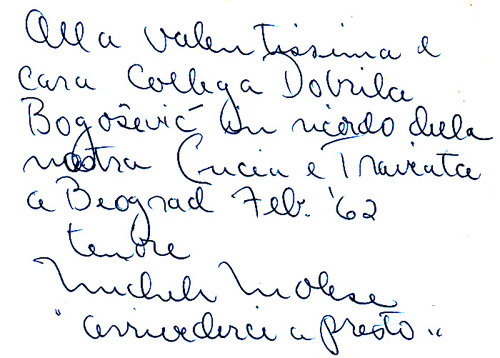 Alla valentissima e
cara collega Dobrila
Bogošević in ricordo della
nostra Lucia e Traviata
a Beograd Feb. '62
tenore
Michele Molese
"arrivederci a presto"